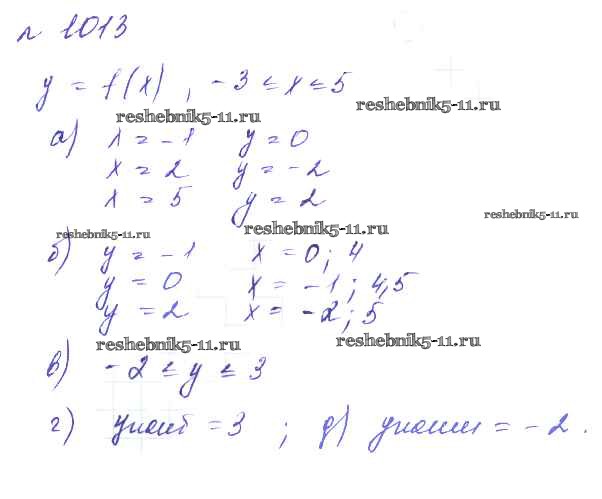 № 1013
y = f(x), -3 ≤ x ≤ 5
reshebnik5-11.ru
reshebnik5-11.ru
а) x = -1 y = 0
x = 2 y = -2
x = 5 y = 2
reshebnik5-11.ru
reshebnik5-11.ru
reshebnik5-11.ru
б) y = -1 x = 0; 4
y = 0 x = -1; 4,5
y = 2 x = -2; 5
reshebnik5-11.ru
reshebnik5-11.ru
в) -2 ≤ y ≤ 3
г) yнаиб = 3 ; д) yнаим = -2.